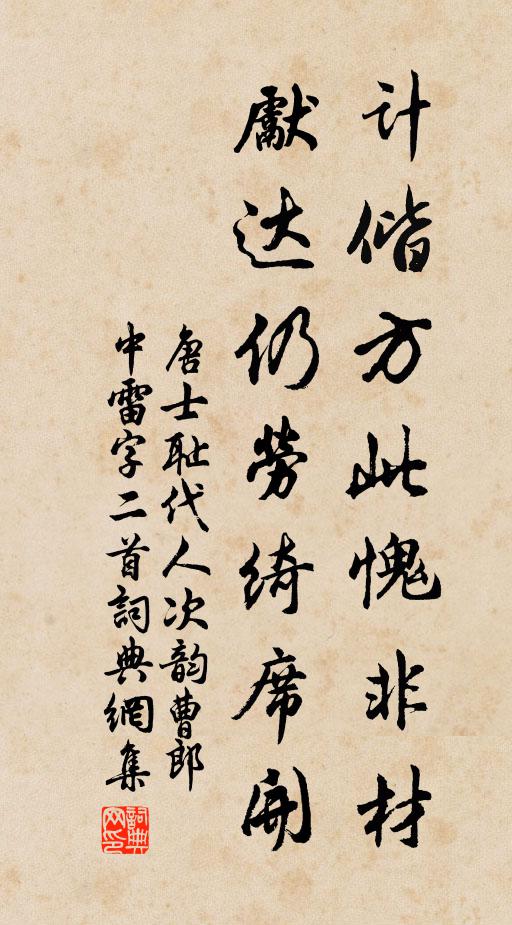 计偕方此愧非材
献达仍劳绮席开
唐士耻代人次韵曹郎
中雷字二首词典网集
词典网印